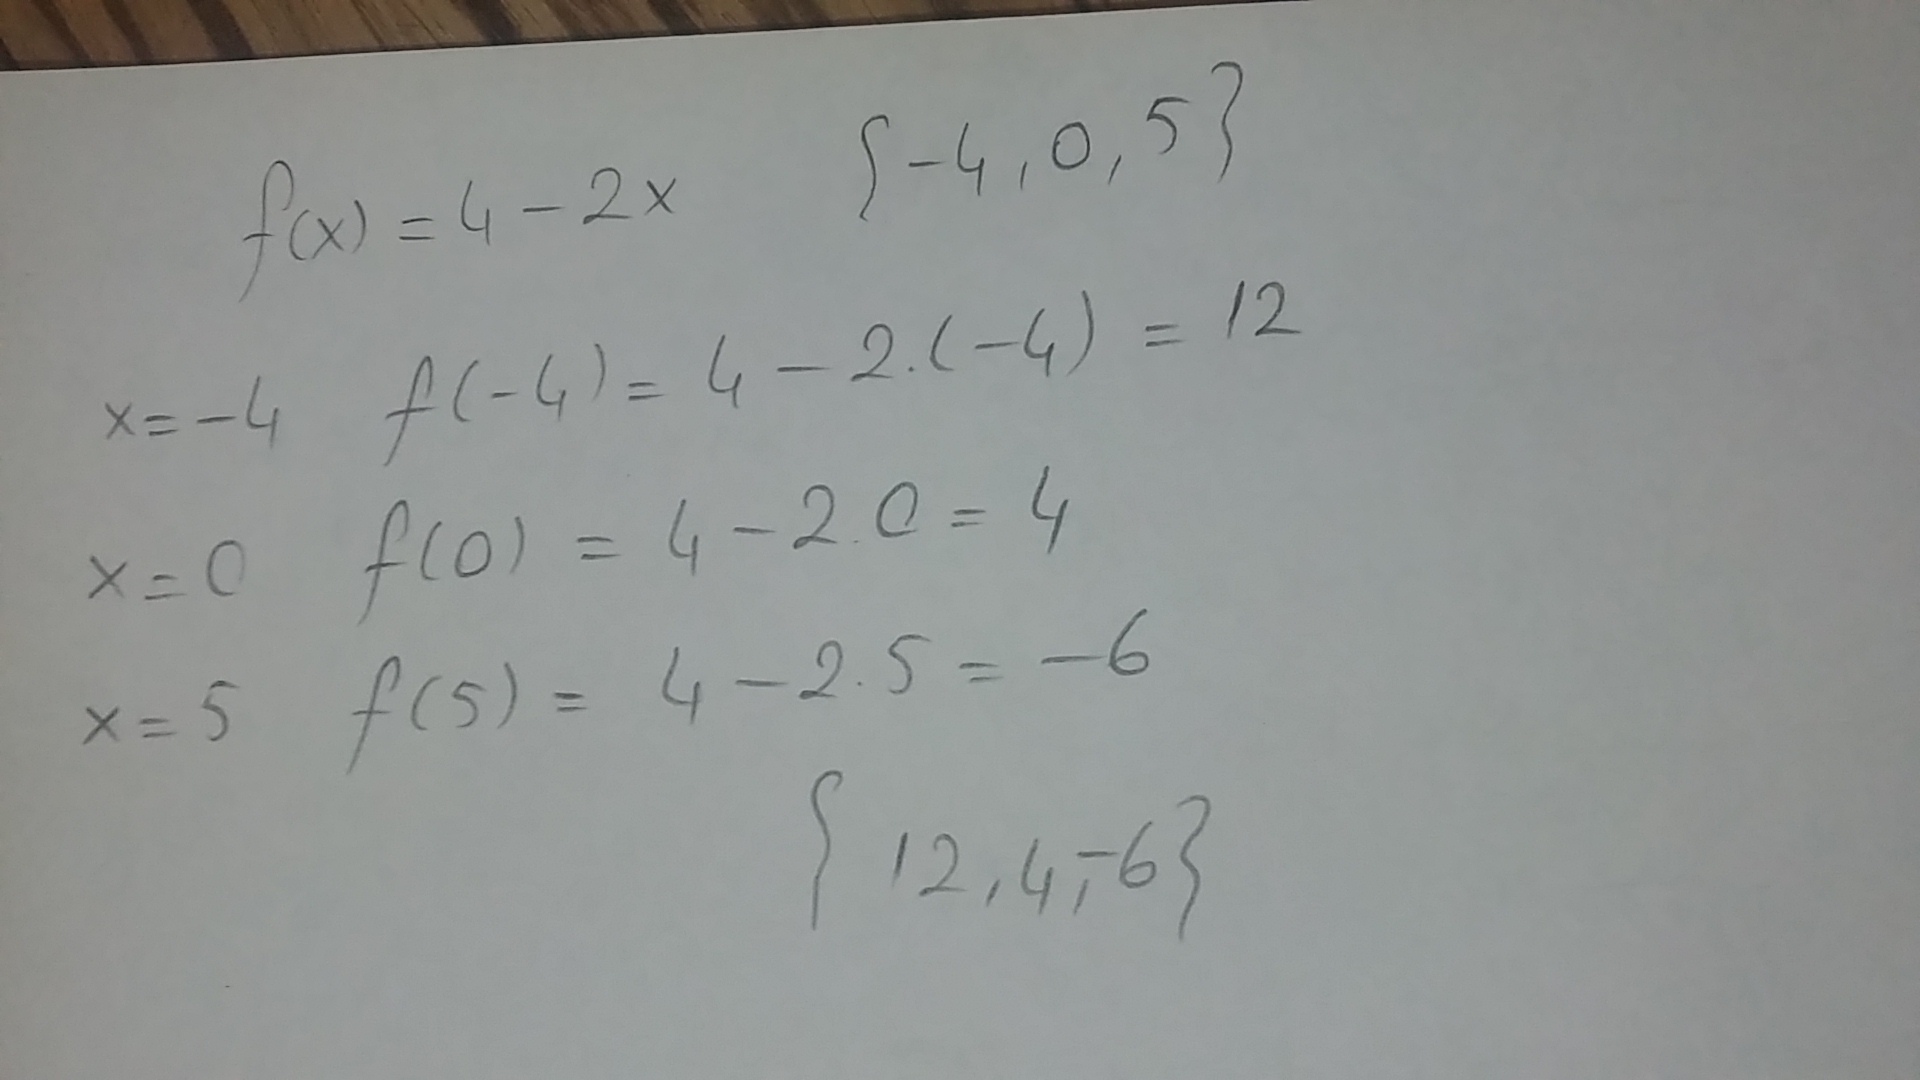 f(x) = 4 - 2x {-4, 0, 5}
x = -4 f(-4) = 4 - 2.(-4) = 12
x = 0 f(0) = 4 - 2.0 = 4
x = 5 f(5) = 4 - 2.5 = -6
{12, 4, -6}